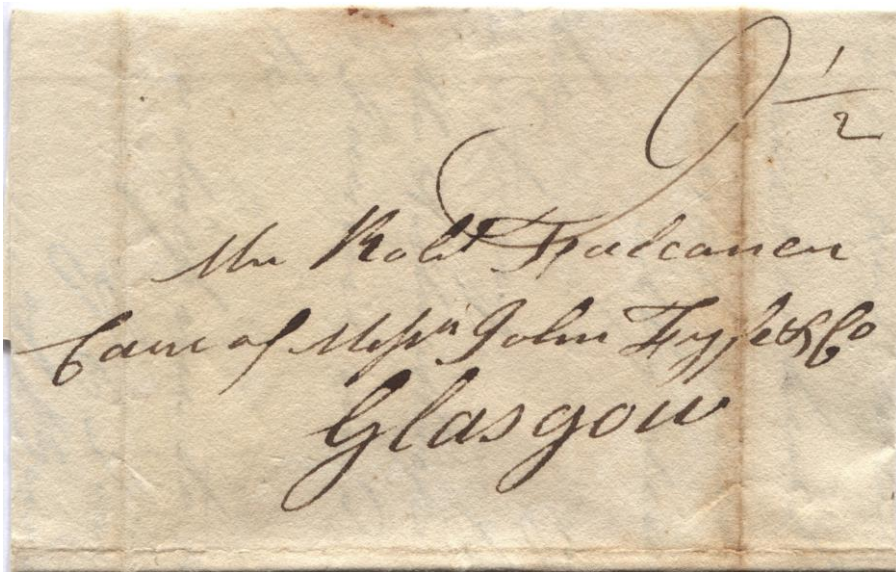 9 1/2
Mr Robt Falconer
Care of Messrs John Fyfe & Co
Glasgow